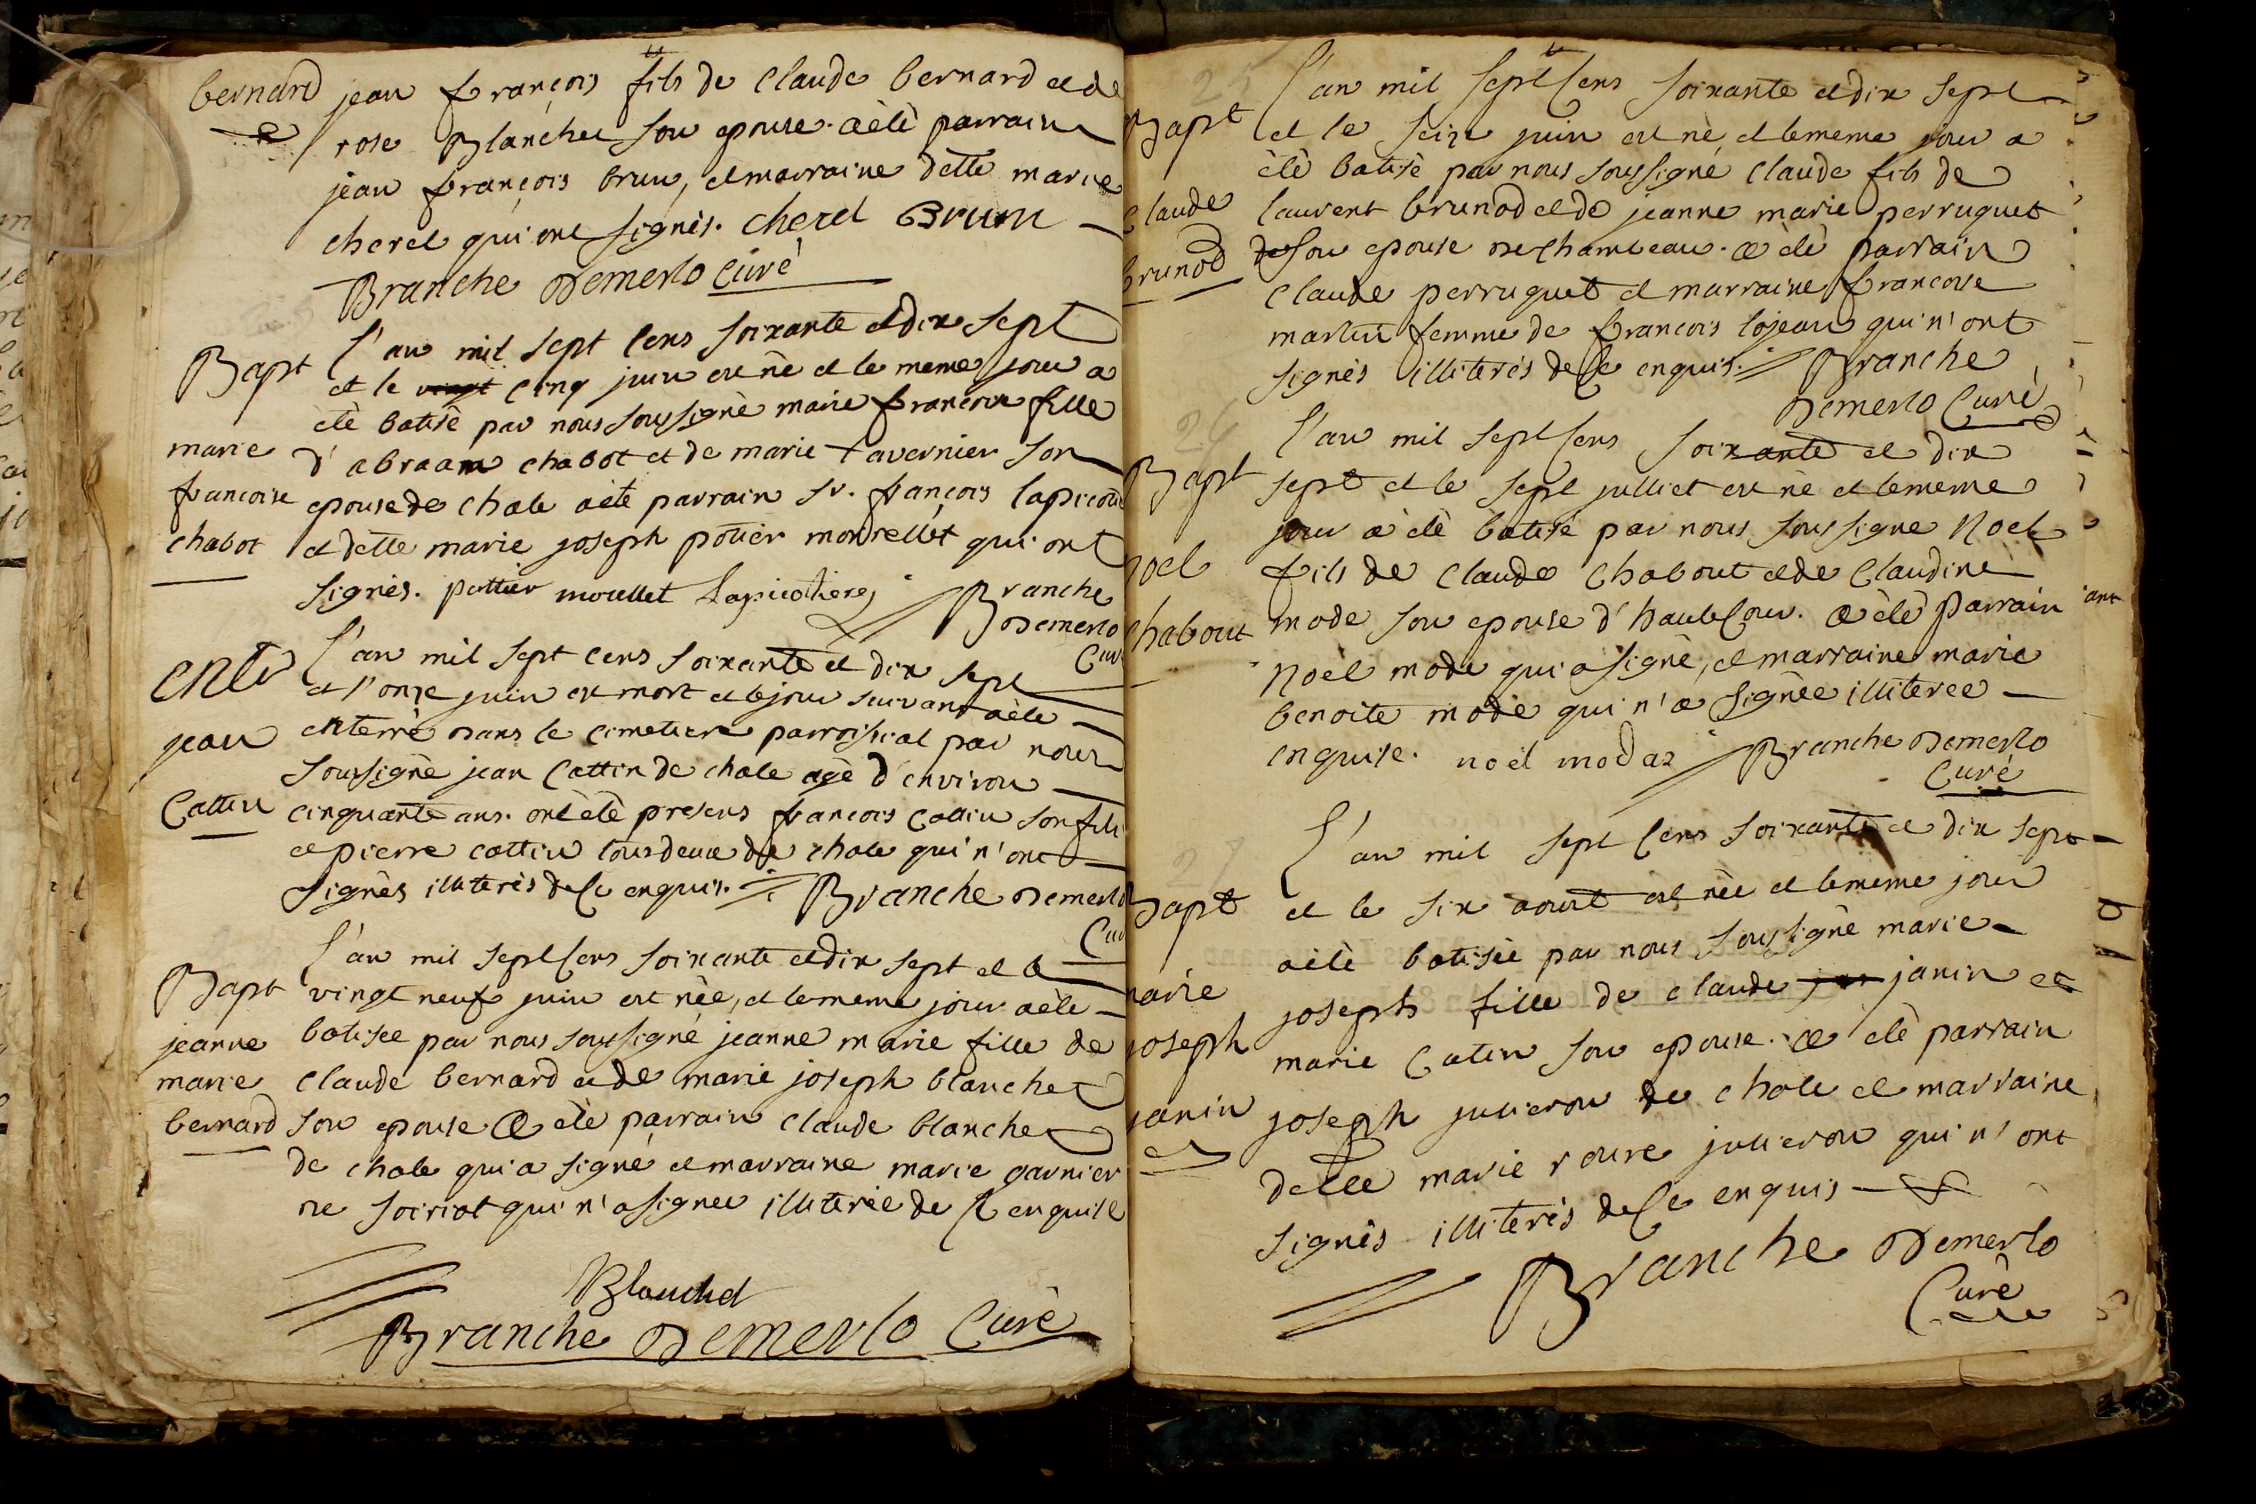 bernard jean françois fils de claude bernard et de
rose Blanchet son epouse. a èté parrain
jean françois brun, et marraine delle marie
cherel qui ont signès. cherel Brun
Branche Demerlo Curè
Bapt l'an mil sept cens soixante et dix sept
et le vingt cinq juin est nè et le meme jour a
ètè batisè par nous soussignè marie francoise fille
marie d'abraam chabot et de marie tavernier son
francoise epouse de chale a ète parrain sr. françois lapicotie
chabot et delle marie joseph potier morrellet qui ont
signès. pottier morellet Lapicotiere Branche
Demerlo
Cur
enter l'an mil sept cens soixante et dix sept
et l'onze juin est mort et le jour suivant a ète
jean enterrè dans le cimetiere parroissial par nous
soussignè jean Cattin de chale agè d'environ
Cattin cinquante ans. ont ètè presens francois Cattin son fils
et pierre cattin tous deux de chale qui n'ont
signès illiterès de ce enquis. Branche Demerlo
Cur
l'an mil sept cens soixante et dix sept et le
Bapt vingt neuf juin est nèe, et le meme jour a ète
jeanne batisee par nous soussigné jeanne marie fille de
marie claude bernard et de marie joseph blanchet
bernard son epouse a ètè parrain claude blanchet
de chale qui a signé et marraine marie garnier
de soiriat qui n'a signee illiterèe de ce enquise
Blanchet
Branche Demerlo Curè
25
l'an mil sept cens soixante et dix sept
Bapt et le seize juin est nè, et le meme jour a
ètè batisè par nous soussigné claude fils de
Claude laurent brunod et de jeanne marie perruquet
brunod de son epouse de chambeau. a ètè parrain
claude perruquet et marraine francoise
martin femme de francois lojean qui n'ont
signès illiterès de ce enquis. Branche
Demerlo Curè
26
l'an mil sept cens soixante et dix
Bapt sept et le sept julliet est nè et le meme
jour a ètè batisè par nous soussigne Noel
noel fils de claude Chabout et de Claudine
chabout mode son epouse d'hautecour. a ètè parrain
Noel mode qui a signè, et marraine marie
benoite mode qui n'a signèe illiteree
enquise. noel modas Branche Demerlo
Curè
27
l'an mil sept cens soixante et dix sept
Bapt et le six aoust est nèe et le meme jour
a ètè batisèe par nous soussignè marie
marie joseph fille de claude janin et
joseph marie Catin son epouse. a ètè parrain
janin joseph jullieron de chale et marraine
delle marie roure jullieron qui n'ont
signès illiterès de ce enquis
Branche Demerlo
Curè